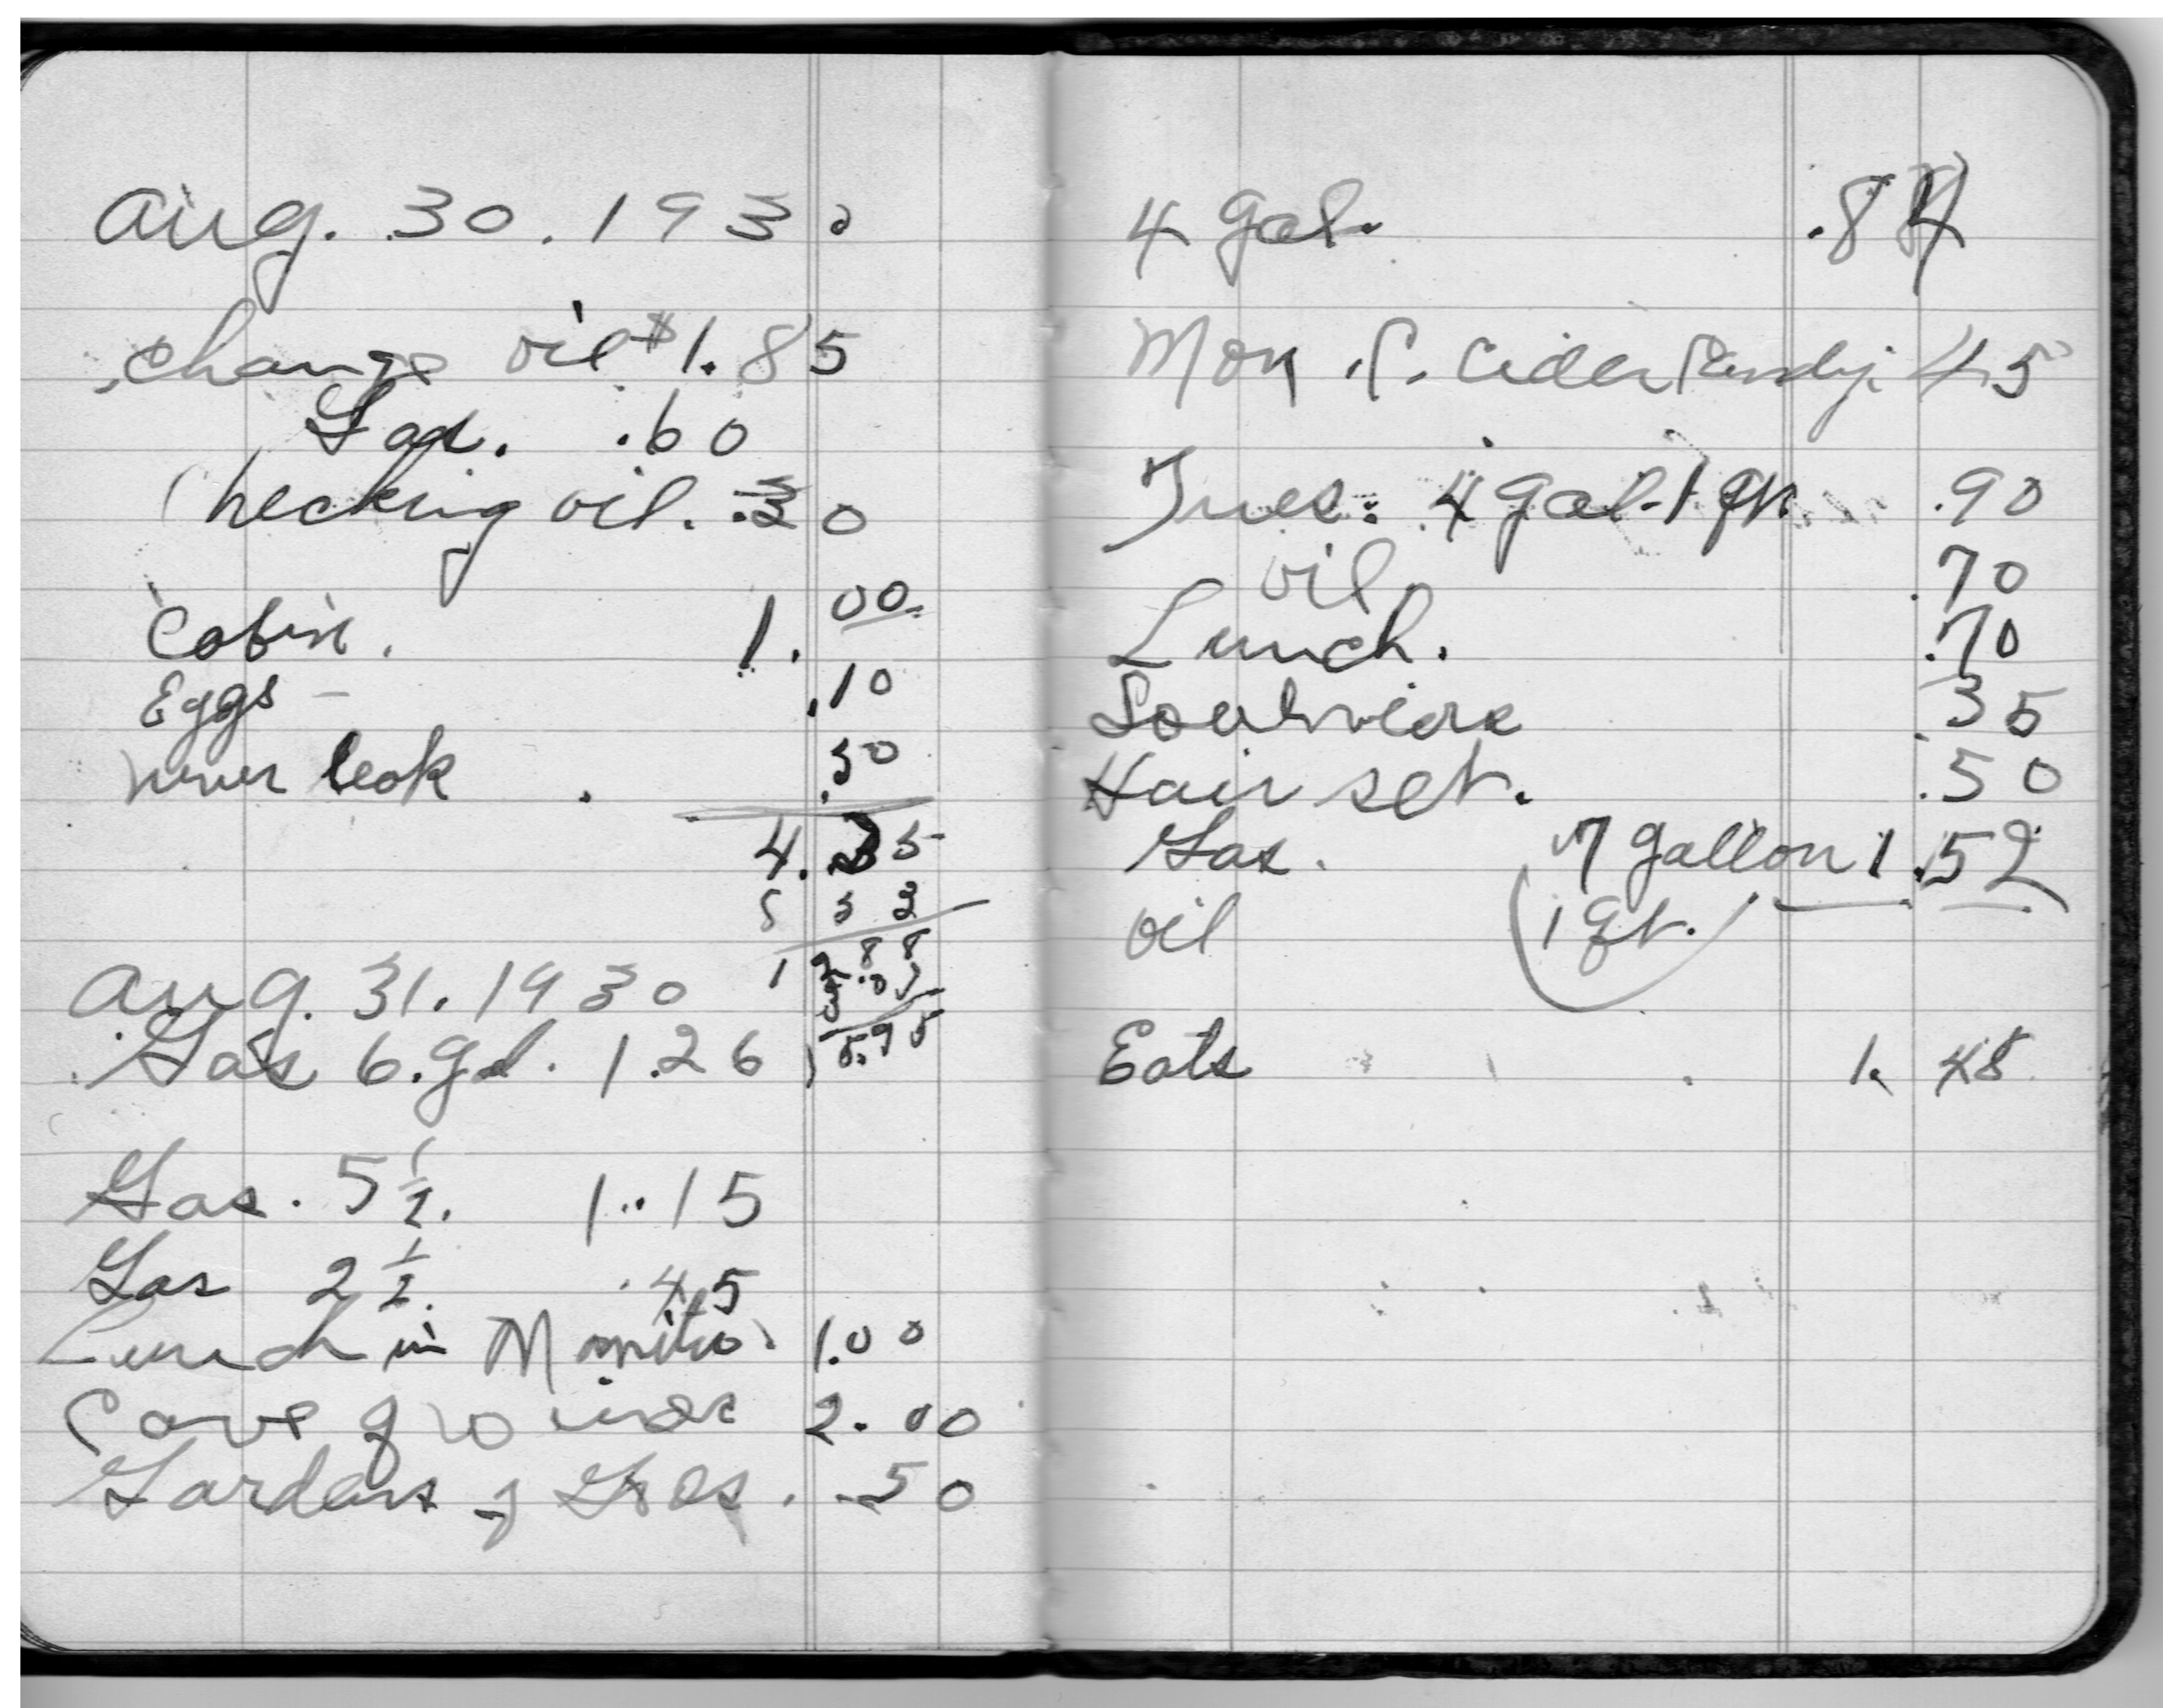 Aug. 30. 1930
change oil $1.85
Gas. .60
Checking oil. .30
Cabin. 1.00
Eggs - .10
never leak .50
4.35
5 3 2
Aug. 31. 1930
Gas 6.gal. 1.26
5.95
Gas. 5 1/2. 1.15
Gas 2 1/2. .45
Lunch in Manitou 1.00
Cave of winds 2.00
Gardens of Gods. .50
4 gal. .84
Mon. Cider Candy 45
Tues. 4 gal. 1 qt. .90
oil .70
Lunch. .70
.35
Hair set. .50
Gas. 7 gallon 1.52
oil (1 qt.)
Eats 1.48